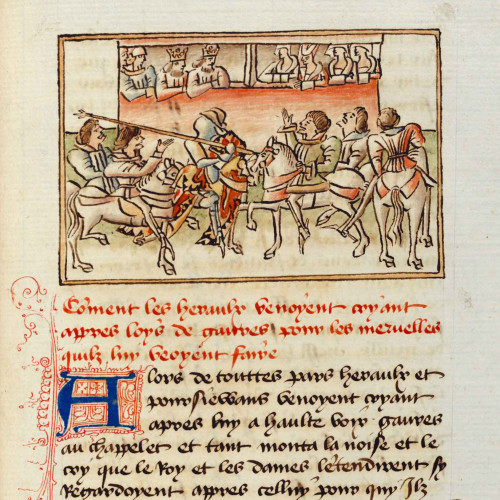 Coment les heraulx venoyent cryant
apres loys de gavres pour les mervelles
quilz luy veoyent faire
Alors de touttes pars heraulx et
poursievans venoyent cryant
apres luy a haulte voix gavres
au chappelet et tant monta la noise et le
cry que le Roy et les dames lentendirent sy
Regardoyent apres celluy pour quy Ilz